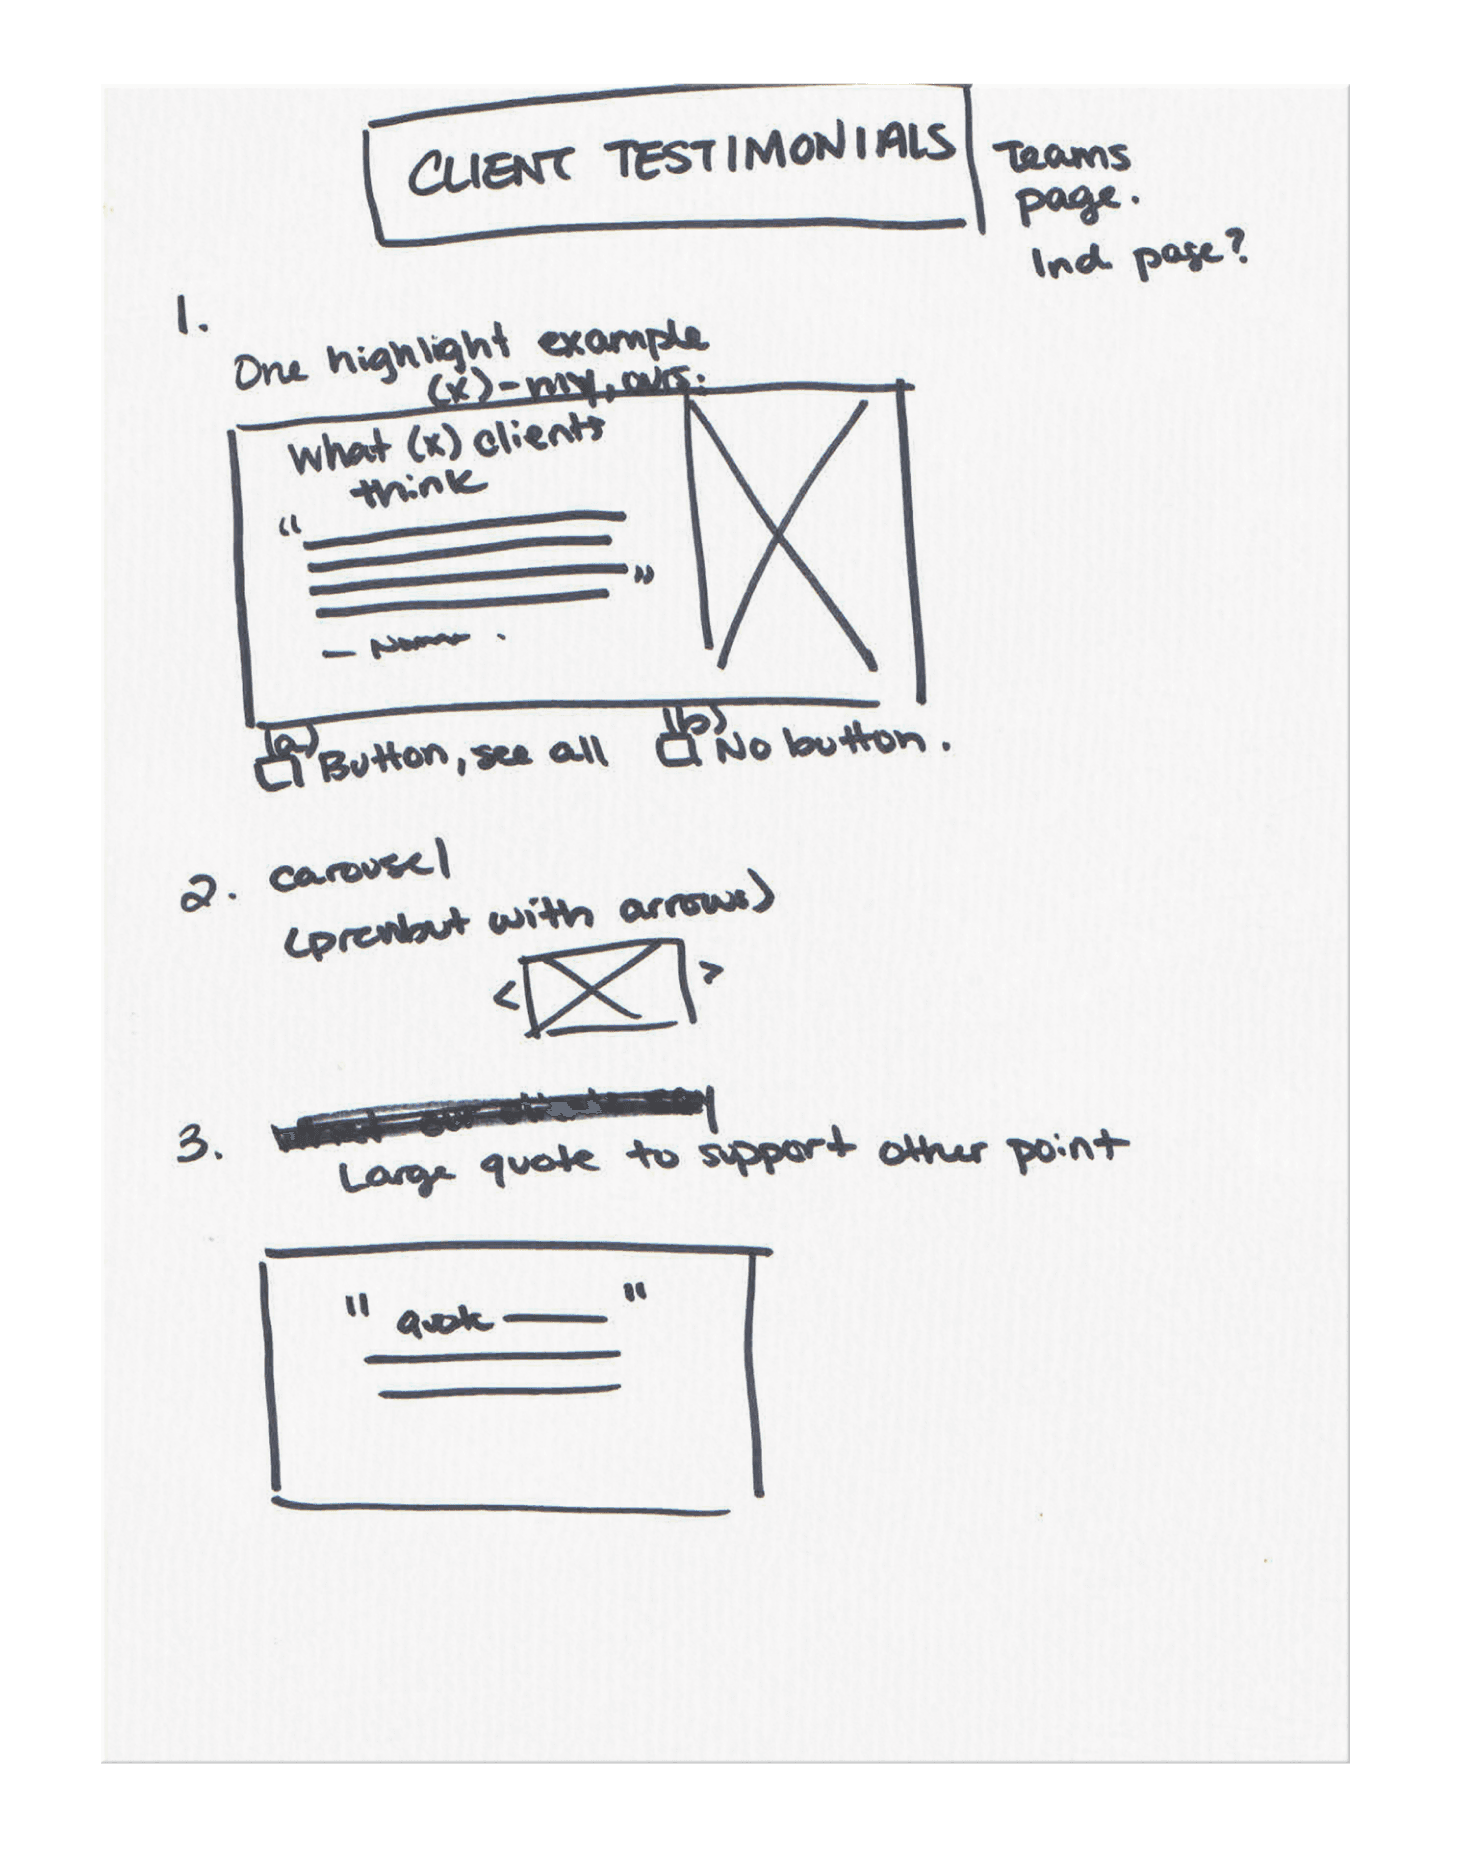 CLIENT TESTIMONIALS
Teams
page.
Ind. page?
1.
One highlight example
(x) - my, ours.
What (x) clients
think
“
”
— Name
(a) Button, see all
(b) No button.
2. carousel
( but with arrows)
< >
3.
Large quote to support other point
" quote "